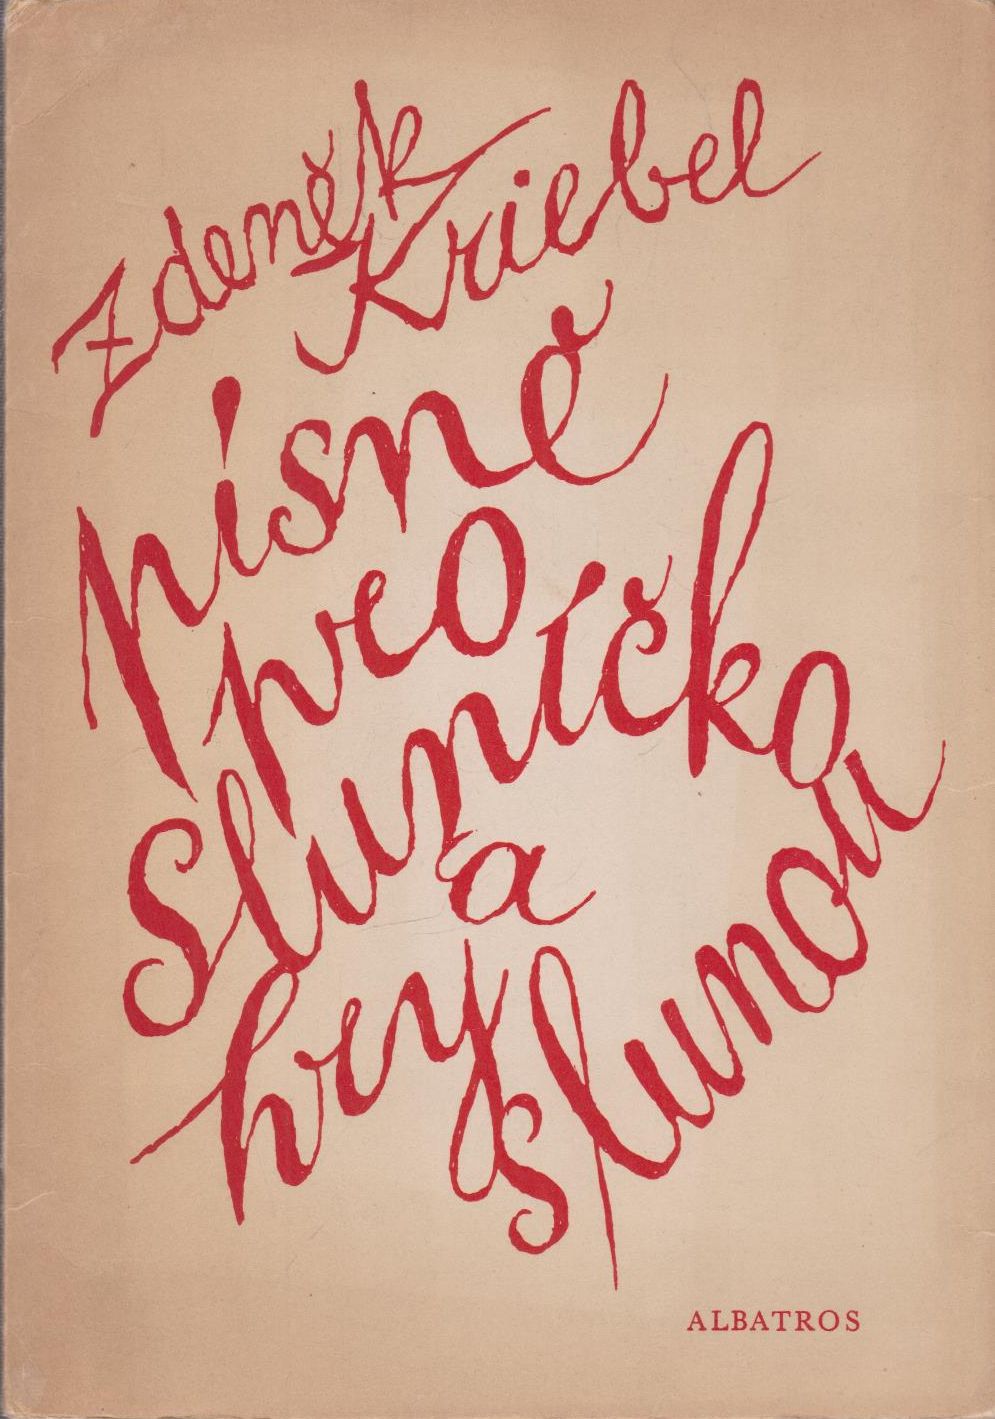 Zdeněk
Kriebel
písně
pro
Sluníčko
a
hry
slunou
ALBATROS